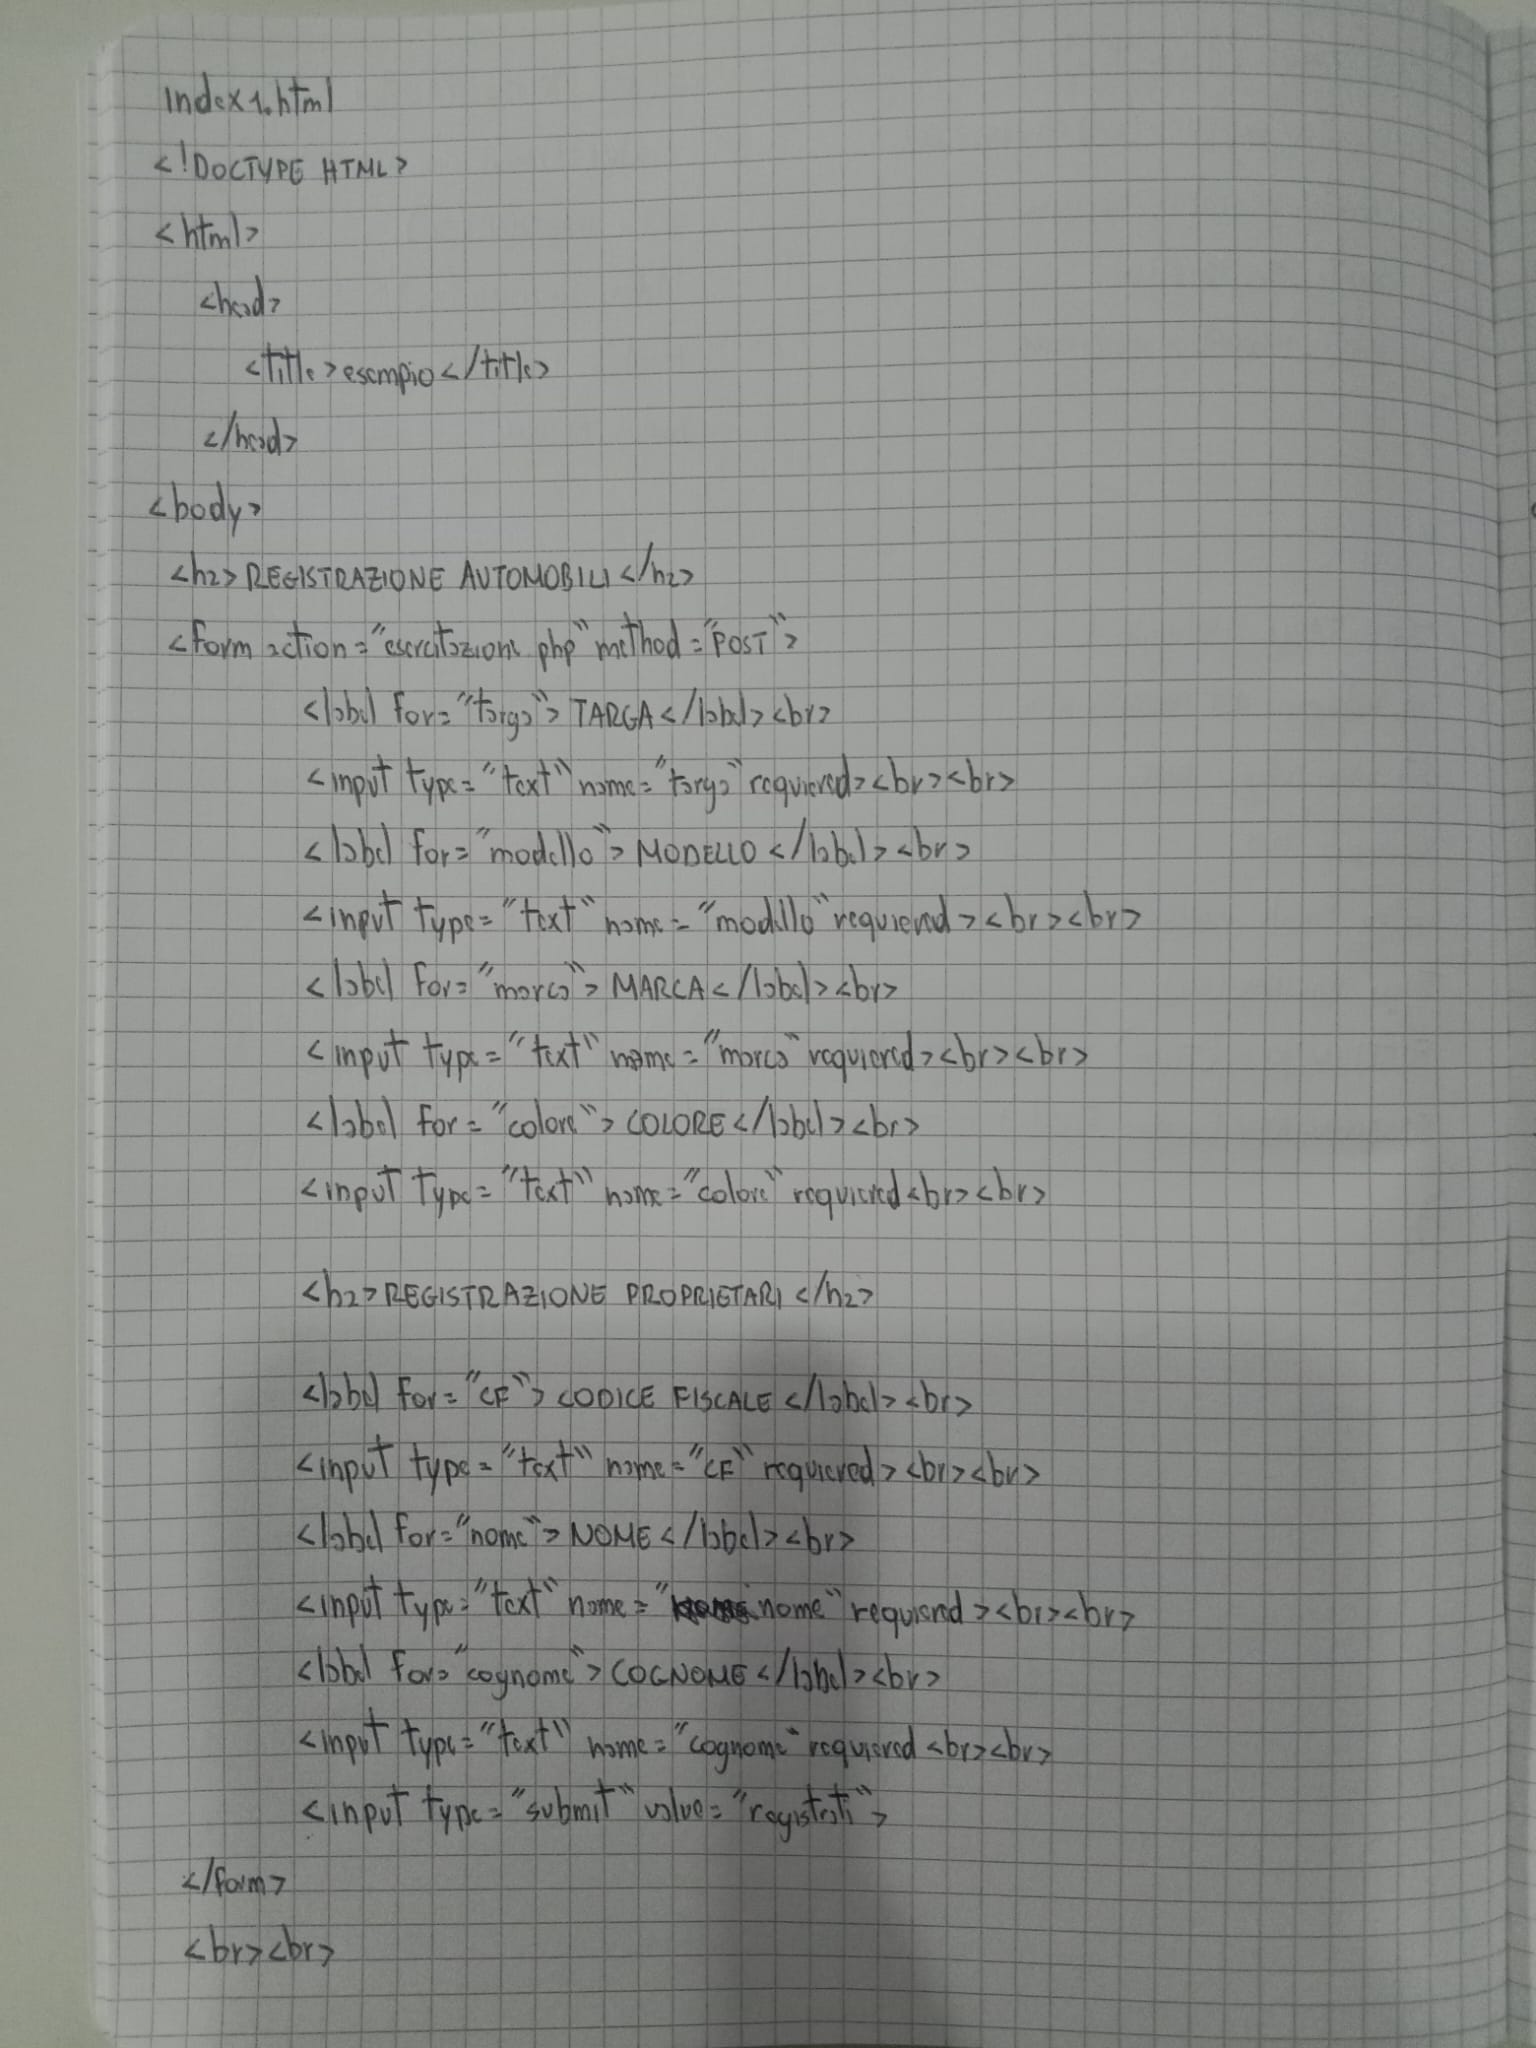 index1.html
<!DOCTYPE HTML>
<html>
<head>
<title>esempio</title>
</head>
<body>
<h2>REGISTRAZIONE AUTOMOBILI</h2>
<form action="esercitazione.php" method="POST">
<label for="targa">TARGA</label><br>
<input type="text" name="targa" requiered><br><br>
<label for="modello">MODELLO</label><br>
<input type="text" name="modello" requiered><br><br>
<label for="marca">MARCA</label><br>
<input type="text" name="marca" requiered><br><br>
<label for="colore">COLORE</label><br>
<input type="text" name="colore" requiered<br><br>
<h2>REGISTRAZIONE PROPRIETARI</h2>
<label for="CF">CODICE FISCALE</label><br>
<input type="text" name="CF" requiered><br><br>
<label for="nome">NOME</label><br>
<input type="text" name="nome" requiered><br><br>
<label for="cognome">COGNOME</label><br>
<input type="text" name="cognome" requiered<br><br>
<input type="submit" value="registrati">
</form>
<br><br>